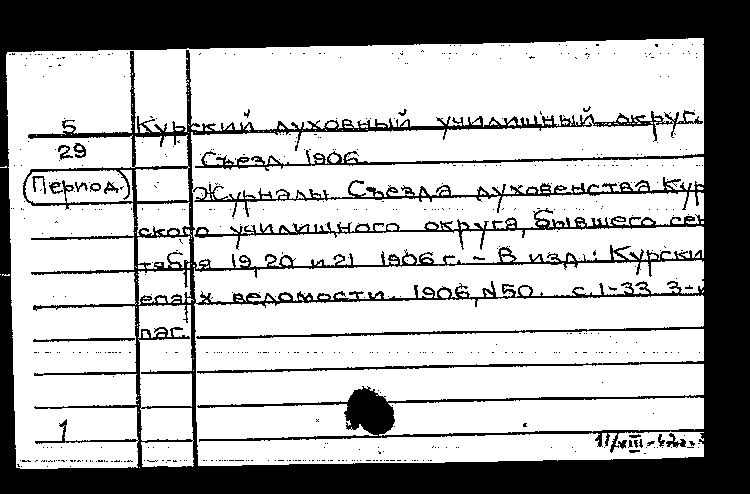 5
29
(Период.)
Курский духовный училищный округ.
Съезд. 1906.
Журналы Съезда духовенства Кур
ского училищного округа, бывшего сен
тября 19, 20 и 21 1906 г. - В изд.: Курски
епарх. ведомости. 1906, N50. с. 1-33 3-й
паг.
1